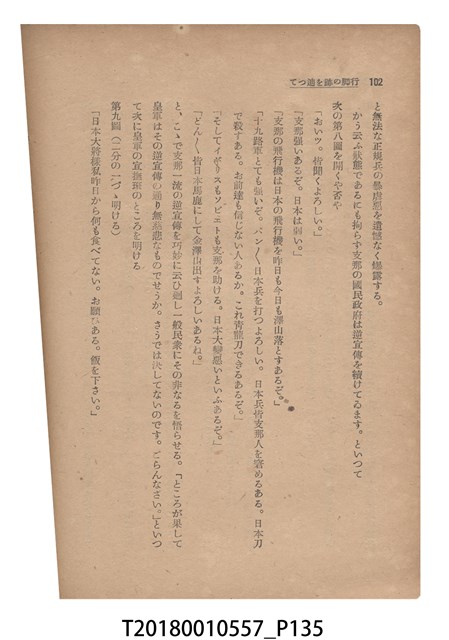 行脚の跡を追つて 102
と無法な正規兵の暴虐惡を遺憾なく爆露する。
かう云ふ狀態であるにも拘らず支那の國民政府は逆宣傳を續けてゐます。といつて
次の第八圖を開くや否や
「おいッ。皆聞くよろしい。」
「支那强いあるぞ。日本は弱い。」
「支那の飛行機は日本の飛行機を昨日も今日も澤山落とすあるぞ。」
「十九路軍とても强いぞ。パン〱日本兵を打つよろしい。日本兵皆支那人を窘めるある。日本刀
で殺すある。お前達も信じない人あるか。これ靑龍刀できるあるぞ。」
「そしてイギリスもソビエトも支那を助ける。日本大變惡いといふあるぞ。」
「どん〱皆日本馬鹿にして金澤山出すよろしいあるね。」
と、こゝで支那一流の逆宣傳を巧妙に云ひ廻し一般民衆にその非なるを悟らせる。「ところが果して
皇軍はその逆宣傳の通り無慈悲なものでせうか。さうでは決してないのです。ごらんなさい。」といつ
て次に皇軍の宣撫班のところを明ける
第九圖(三分の一づゝ明ける)
「日本大將樣私昨日から何も食べてない。お願ひある。飯を下さい。」
T20180010557_P135